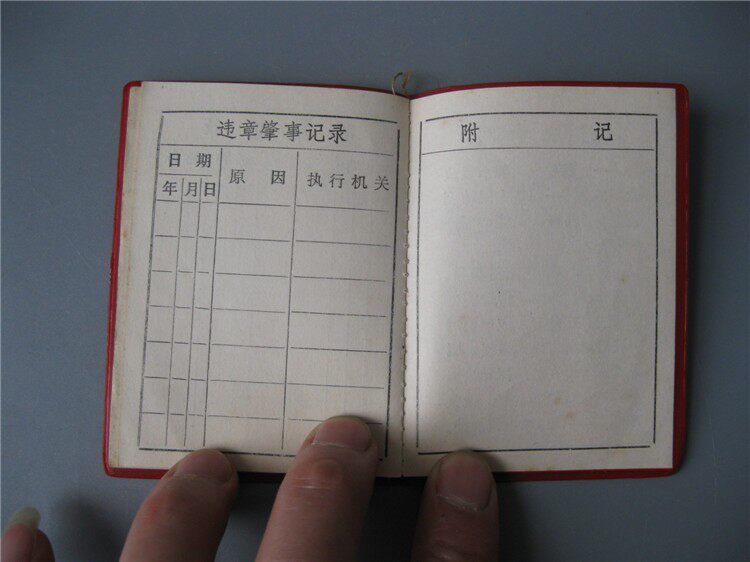 违章肇事记录
日期
原因
执行机关
年月日
附记